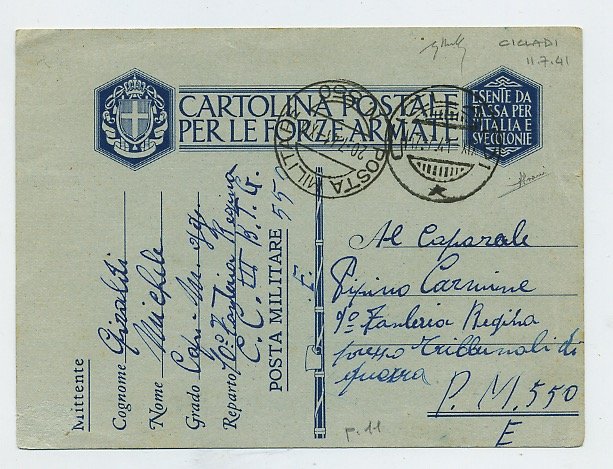 CICLADI
11.7.41
CARTOLINA POSTALE
PER LE FORZE ARMATE
ESENTE DA
TASSA PER
L'ITALIA E
SVE COLONIE
POSTA MILITARE
Mittente
Cognome Giraldi
Nome Michele
Grado Cap. Magg.
Reparto 10° Fanteria Regina
C.C. III B.T.G.
POSTA MILITARE 550
E.
Al Caporale
Pepino Carmine
9° Fanteria Regina
presso Tribunali di
guerra
P. M. 550
E
p. 11